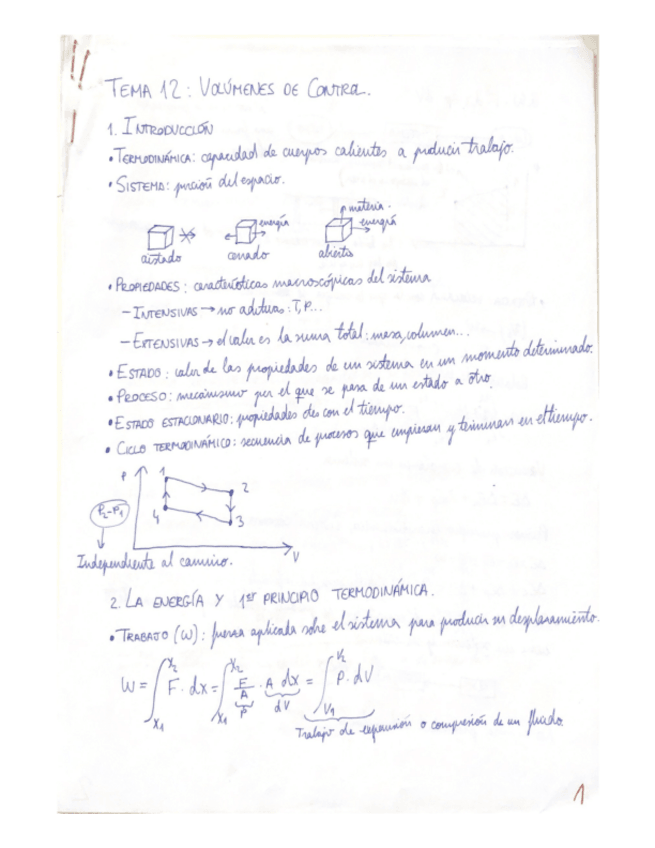 TEMA 12: VOLÚMENES DE CONTROL.
1. INTRODUCCIÓN
• TERMODINÁMICA: capacidad de cuerpos calientes a producir trabajo.
• SISTEMA: porción del espacio.
aislado
energía
cerrado
materia.
energía
abierto
• PROPIEDADES: características macroscópicas del sistema
- INTENSIVAS → no aditivas: T, P...
- EXTENSIVAS → el valor es la suma total: masa, volumen...
• ESTADO: valor de las propiedades de un sistema en un momento determinado.
• PROCESO: mecanismo por el que se pasa de un estado a otro.
• ESTADO ESTACIONARIO: propiedades ctes con el tiempo.
• CICLO TERMODINÁMICO: secuencia de procesos que empiezan y terminan en el tiempo.
P
1
2
3
4
V
P₂-P₁
Independiente al camino.
2. LA ENERGÍA Y 1er PRINCIPIO TERMODINÁMICA.
• TRABAJO (W): fuerza aplicada sobre el sistema para producir un desplazamiento.
W = ∫_{x₁}^{x₂} F · dx = ∫_{x₁}^{x₂} F/A · A dx = ∫_{V₁}^{V₂} P · dV
P dV
Trabajo de expansión o compresión de un fluido.
1